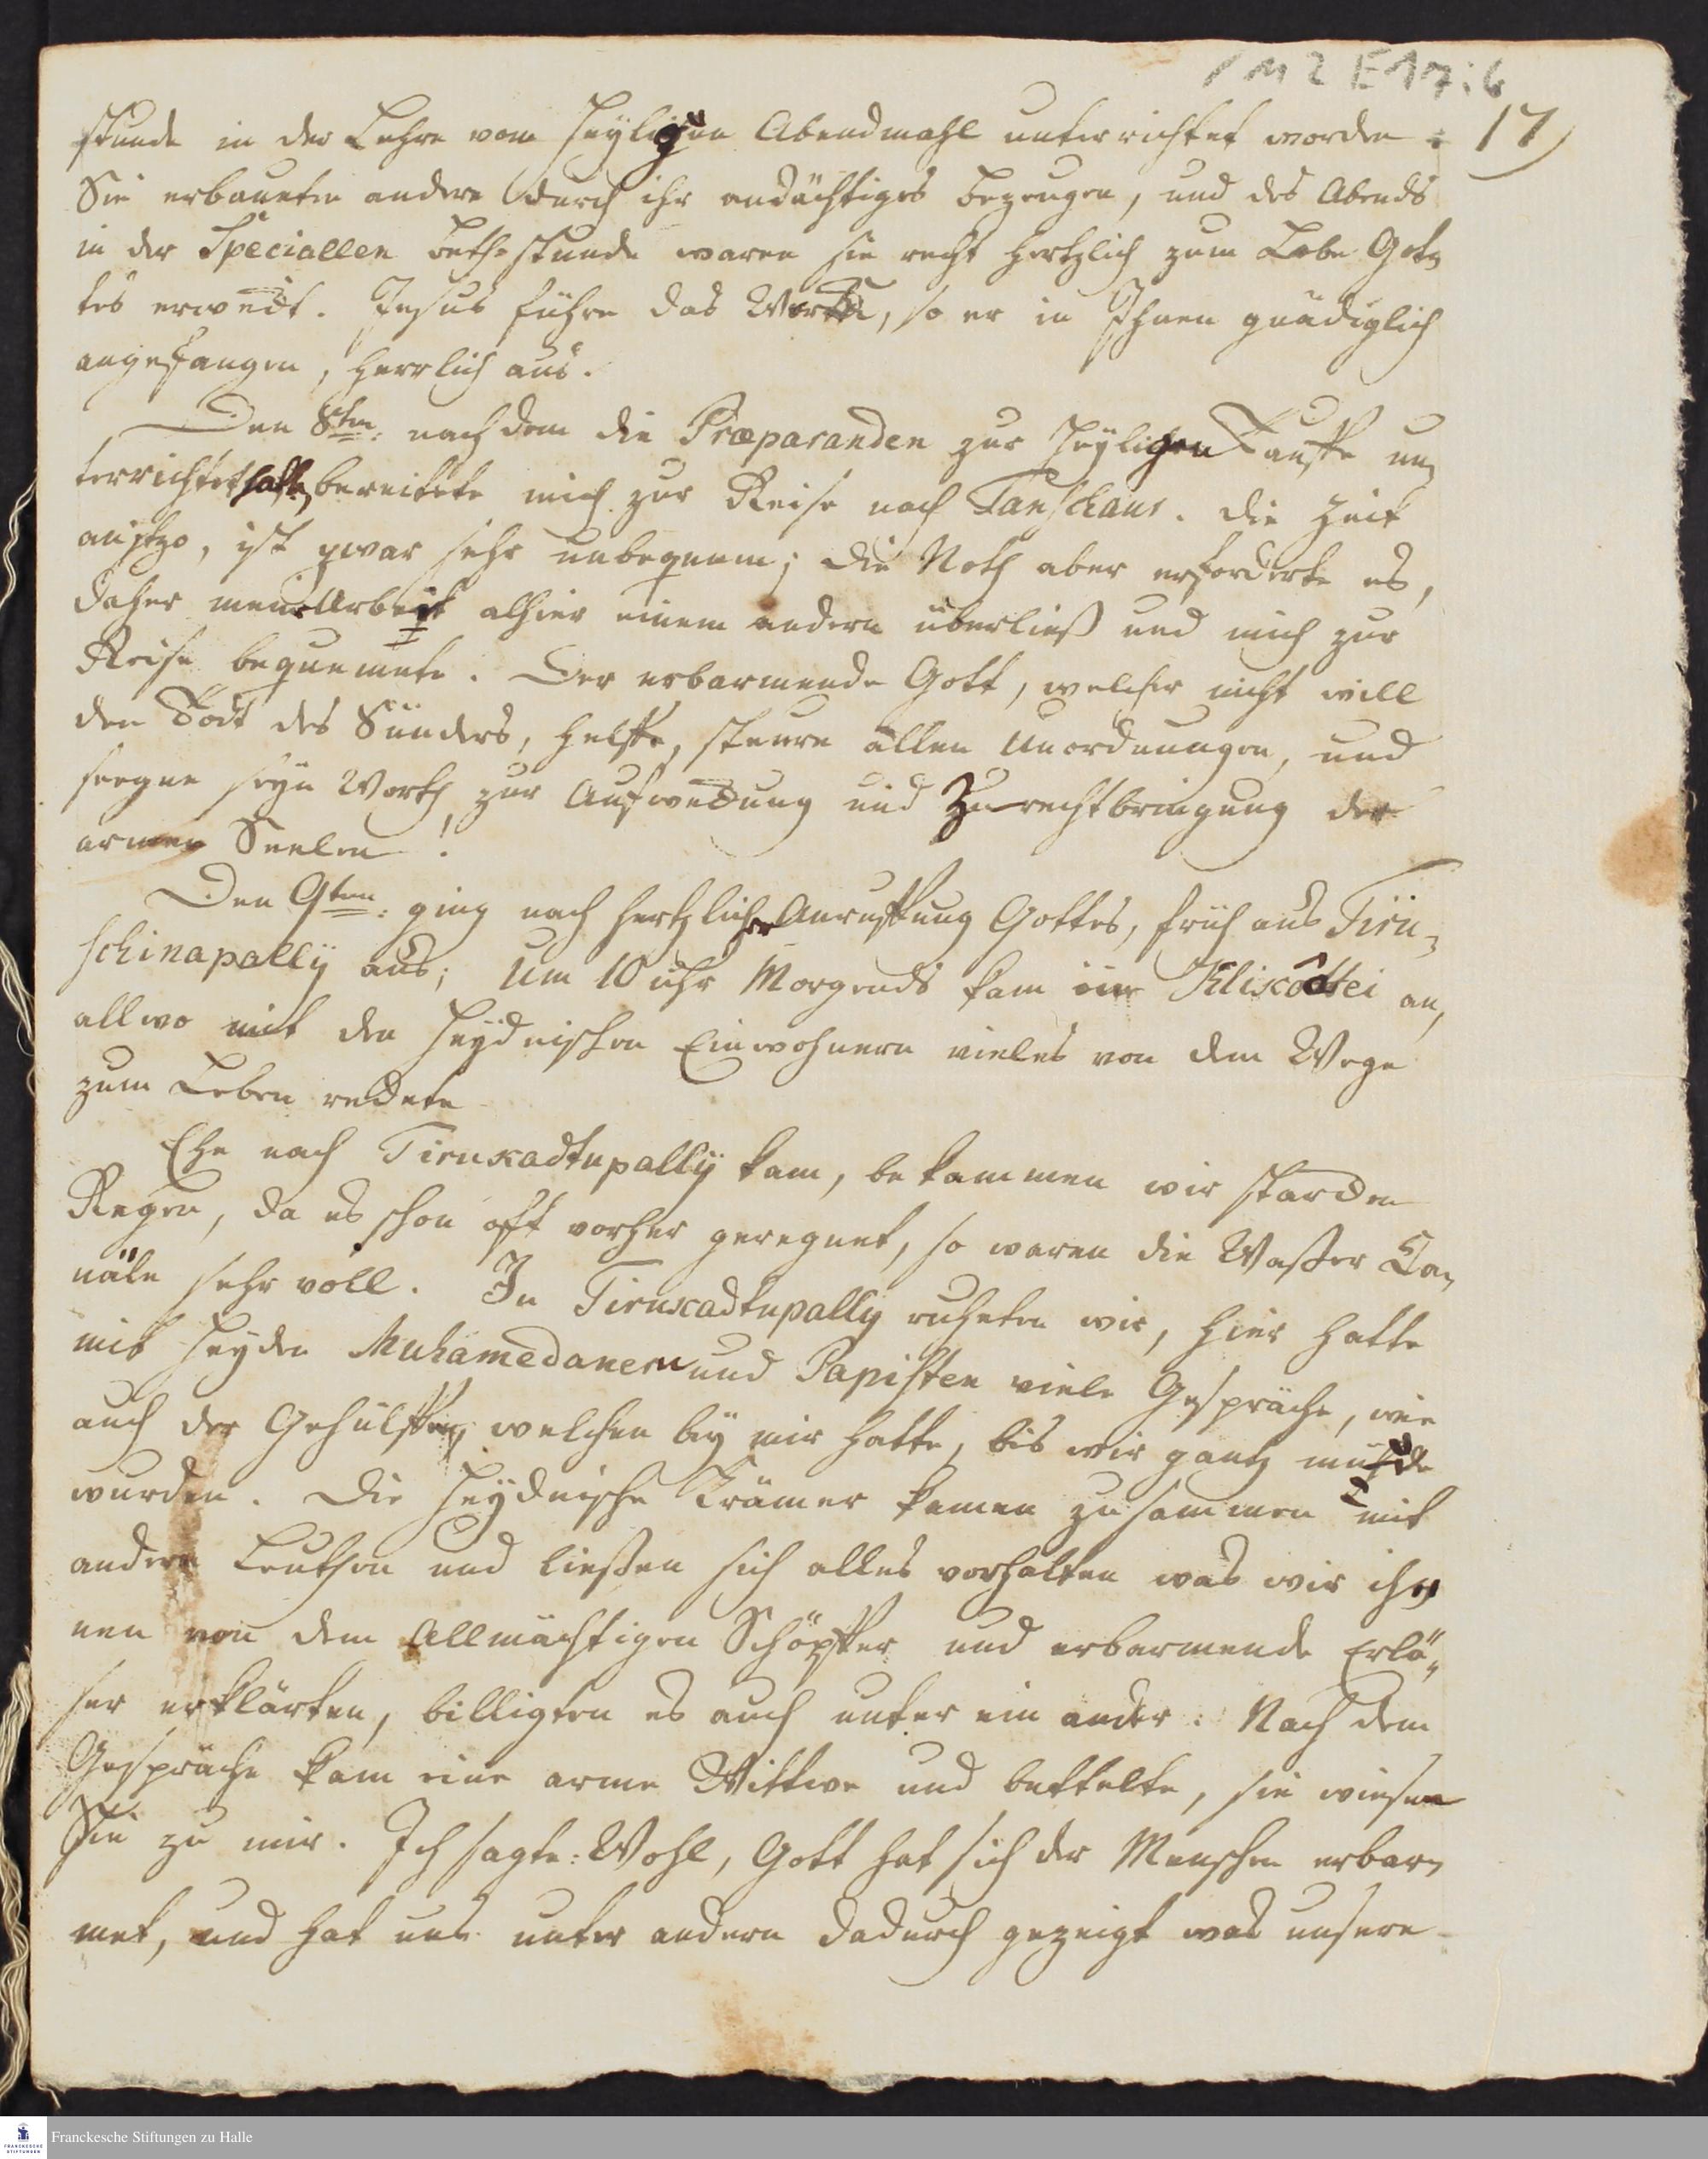 1 M 2 E 17 : 6
17)
stunde in der Lehre vom Heyligen Abendmahl unterrichtet worden.
Sie erbaueten andere durch ihr andächtiges bezeugen, und des Abends
in der Speciallen beth-stunde waren sie recht hertzlich zum Lobe Got-
tes erweckt. Jesus führe das Werck, so er in Ihnen gnädiglich
angefangen, herrlich aus.
Den 8ten: nach dem die Præparanden zur Heyligen Tauffe un-
terrichtet hatte, bereitete mich zur Reise nach Tanschaur. die Zeit
anjetzo, ist zwar sehr unbequem; die Noth aber erforderte es,
daher meine Arbeit alhier einem andern überließ und mich zur
Reise bequemete. Der erbarmende Gott, welcher nicht will
den Todt des Sünders, helffe, steure allen Unordnungen, und
seegne seyn Worth zur Aufweckung und Zurechtbringung der
armen Seelen!
Den 9ten: ging nach hertzlicher Anruffung Gottes, früh aus Tiru-
schinapally aus; Um 10 uhr Morgends kam in Kliscottei an,
allwo mit den Heydnischen Einwohnern vieles von dem Wege
zum Leben redete
Ehe nach Tirukadtupally kam, bekammen wir starcken
Regen, da es schon offt vorher geregnet, so waren die Waßer Ca-
näle sehr voll. In Tirukadtupally ruheten wir, hier hatte
mit Heyden Muhamedanern und Papisten viele Gespräche, wie
auch der Gehülffe, welchen bey mir hatte, bis wir gantz müde
wurden. Die Heydnische Krämer kamen zusammen mit
andern Leuthen und ließen sich alles vorhalten was wir ih-
nen von dem Allmächtigen Schöpffer und erbarmende Erlö-
ser erklärten, billigten es auch unter ein ander. Nach dem
Gespräche kam eine arme Wittwe und bettelte, sie wiesen
Sie zu mir. Ich sagte: Wohl, Gott hat sich der Menschen erbar-
met, und hat uns unter andern dadurch gezeigt was unsere
Franckesche Stiftungen zu Halle